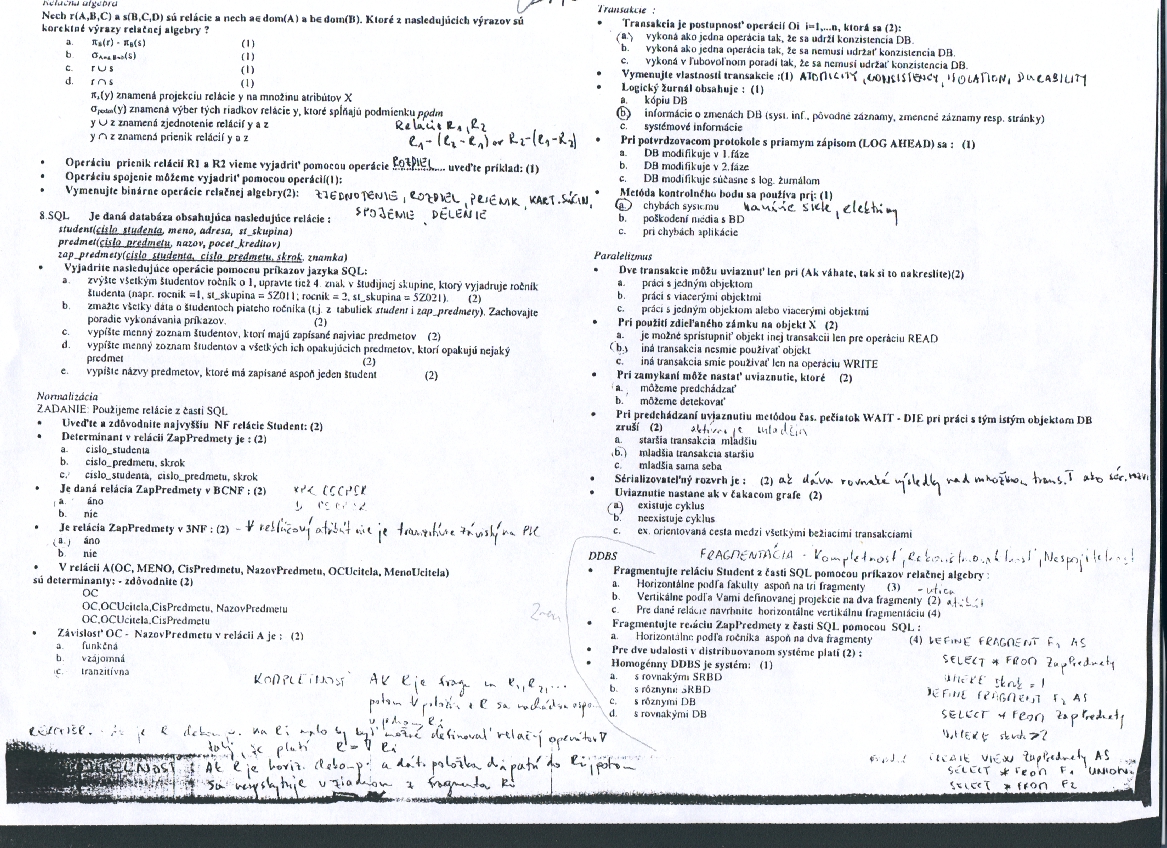 Relačná algebra
Nech r(A,B,C) a s(B,C,D) sú relácie a nech a∈dom(A) a b∈dom(B). Ktoré z nasledujúcich výrazov sú
korektné výrazy relačnej algebry ?
a. π_B(r) - π_B(s) (1)
b. σ_A=a,B=b(s) (1)
c. r ∪ s (1)
d. r ∩ s (1)
π_x(y) znamená projekciu relácie y na množinu atribútov X
σ_ppdm(y) znamená výber tých riadkov relácie y, ktoré spĺňajú podmienku ppdm
y ∪ z znamená zjednotenie relácií y a z
y ∩ z znamená prienik relácií y a z
Relácie R1, R2
R1-(R2-R1) or R2-(R1-R2)
• Operáciu prienik relácií R1 a R2 vieme vyjadriť pomocou operácie ROZDIEL..... uveďte príklad: (1)
• Operáciu spojenie môžeme vyjadriť pomocou operácií(1):
• Vymenujte binárne operácie relačnej algebry(2): ZJEDNOTENIE, ROZDIEL, PRIENIK, KART. SÚČIN,
SPOJENIE DELENIE
8.SQL Je daná databáza obsahujúca nasledujúce relácie :
student(cislo_studenta, meno, adresa, st_skupina)
predmet(cislo_predmetu, nazov, pocet_kreditov)
zap_predmety(cislo_studenta, cislo_predmetu, skrok, znamka)
• Vyjadrite nasledujúce operácie pomocou príkazov jazyka SQL:
a. zvýšte všetkým študentov ročník o 1, upravte tiež 4. znak v študijnej skupine, ktorý vyjadruje ročník
študenta (napr. rocnik =1, st_skupina = 5Z011; rocnik = 2, st_skupina = 5Z021). (2)
b. zmažte všetky dáta o študentoch piateho ročníka (t.j. z tabuliek student i zap_predmety). Zachovajte
poradie vykonávania príkazov. (2)
c. vypíšte menný zoznam študentov, ktorí majú zapísané najviac predmetov (2)
d. vypíšte menný zoznam študentov a všetkých ich opakujúcich predmetov, ktorí opakujú nejaký
predmet (2)
e. vypíšte názvy predmetov, ktoré má zapísané aspoň jeden študent (2)
Normalizácia
ZADANIE: Použijeme relácie z časti SQL
• Uveďte a zdôvodnite najvyššiu NF relácie Student: (2)
• Determinant v relácii ZapPredmety je : (2)
a. cislo_studenta
b. cislo_predmetu, skrok
c. cislo_studenta, cislo_predmetu, skrok
• Je daná relácia ZapPredmety v BCNF : (2)
a. áno
b. nie
• Je relácia ZapPredmety v 3NF : (2) - ∀ nekľúčový atribút nie je tranzitívne závislý na PK
(a.) áno
b. nie
• V relácii A(OC, MENO, CisPredmetu, NazovPredmetu, OCUcitela, MenoUcitela)
sú determinanty: - zdôvodnite (2)
OC
OC,OCUcitela,CisPredmetu, NazovPredmetu
OC,OCUcitela,CisPredmetu
• Závislosť OC - NazovPredmetu v relácii A je : (2)
a. funkčná
b. vzájomná
c. tranzitívna
KOMPLETNOSŤ AK R je frag. na R1, R2, ...
potom ∀ položka z R sa nachádza aspo..
v jednom Ri
je R dekomp. na Ri malo by byť možné definovať relačný operátor ∇
taký, že platí R = ∇ Ri
AK R je horiz. dekomp. a dát. položka di patrí do Ri, potom
sa nevyskytuje v žiadnom z fragmentu Rk
Transakcie :
• Transakcia je postupnosť operácií Oi i=1,...n, ktorá sa (2):
(a.) vykoná ako jedna operácia tak, že sa udrží konzistencia DB.
b. vykoná ako jedna operácia tak, že sa nemusí udržať konzistencia DB.
c. vykoná v ľubovoľnom poradí tak, že sa nemusí udržať konzistencia DB.
• Vymenujte vlastnosti transakcie :(1) ATOMICITY, CONSISTENCY, ISOLATION, DURABILITY
• Logický žurnál obsahuje : (1)
a. kópiu DB
(b) informácie o zmenách DB (syst. inf., pôvodne záznamy, zmenené záznamy resp. stránky)
c. systémové informácie
• Pri potvrdzovacom protokole s priamym zápisom (LOG AHEAD) sa : (1)
a. DB modifikuje v 1.fáze
b. DB modifikuje v 2.fáze
c. DB modifikuje súčasne s log. žurnálom
• Metóda kontrolného bodu sa používa pri: (1)
(a.) chybách systému havárie siete, elektriny
b. poškodení média s BD
c. pri chybách aplikácie
Paralelizmus
• Dve transakcie môžu uviaznuť len pri (Ak váhate, tak si to nakreslite)(2)
a. práci s jedným objektom
b. práci s viacerými objektmi
c. práci s jedným objektom alebo viacerými objektmi
• Pri použití zdieľaného zámku na objekt X (2)
a. je možné sprístupniť objekt inej transakcii len pre operáciu READ
(b.) iná transakcia nesmie používať objekt
c. iná transakcia smie používať len na operáciu WRITE
• Pri zamykaní môže nastať uviaznutie, ktoré (2)
a. môžeme predchádzať
b. môžeme detekovať
• Pri predchádzaní uviaznutiu metódou čas. pečiatok WAIT - DIE pri práci s tým istým objektom DB
zruší (2) aktívna je mladšia
a. staršia transakcia mladšiu
(b.) mladšia transakcia staršiu
c. mladšia sama seba
• Sérializovateľný rozvrh je : (2) ak dáva rovnaké výsledky nad množinou trans. T ako sér. rozvr
• Uviaznutie nastane ak v čakacom grafe (2)
(a) existuje cyklus
b. neexistuje cyklus
c. ex. orientovaná cesta medzi všetkými bežiacimi transakciami
DDBS FRAGMENTÁCIA - Kompletnosť, Rekonštruovateľnosť, Nespojiteľnosť
• Fragmentujte reláciu Student z časti SQL pomocou príkazov relačnej algebry :
a. Horizontálne podľa fakulty aspoň na tri fragmenty (3)
b. Vertikálne podľa Vami definovanej projekcie na dva fragmenty (2)
c. Pre dané relácie navrhnite horizontálne vertikálnu fragmentáciu (4)
• Fragmentujte reláciu ZapPredmety z časti SQL pomocou SQL :
a. Horizontálne podľa ročníka aspoň na dva fragmenty (4) DEFINE FRAGMENT F1 AS
• Pre dve udalosti v distribuovanom systéme platí (2) :
SELECT * FROM ZapPredmety
• Homogénny DDBS je systém: (1)
WHERE skrok = 1
a. s rovnakými SRBD
b. s rôznymi SRBD
c. s rôznymi DB
d. s rovnakými DB
DEFINE FRAGMENT F2 AS
SELECT * FROM ZapPredmety
WHERE skrok>2
CREATE VIEW ZapPredmety AS
SELECT * FROM F1 UNION
SELECT * FROM F2